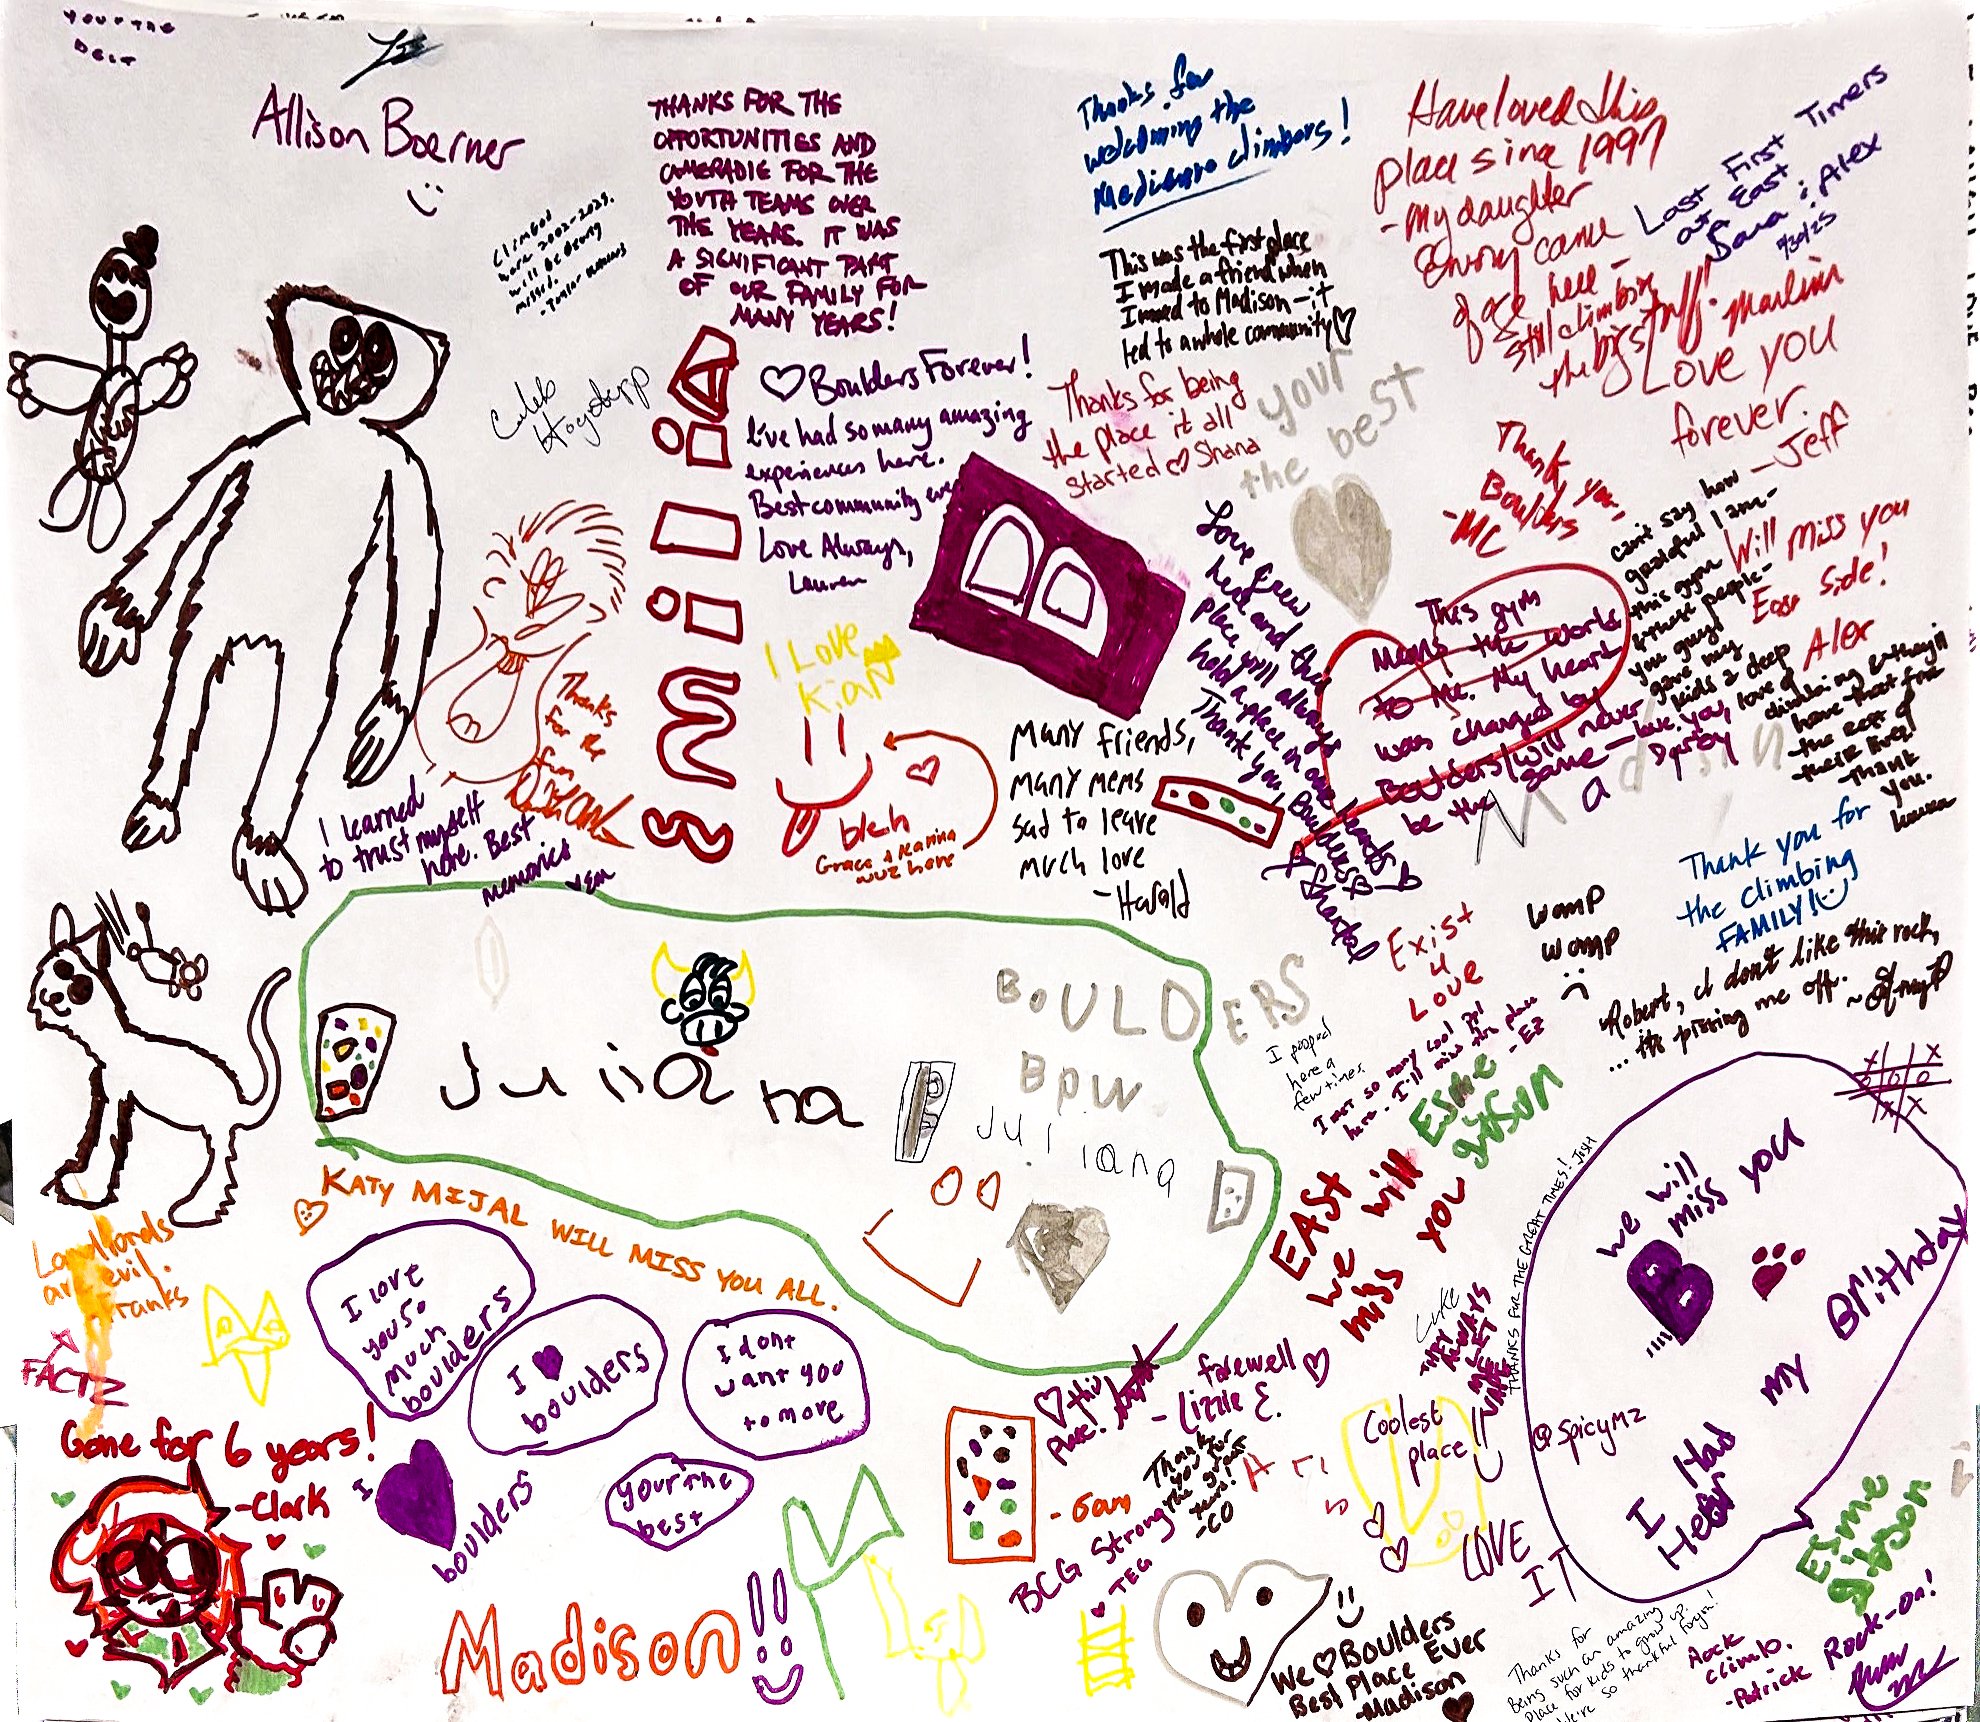 YOUR THE
BEST
Allison Boerner
Climbed
here 2002-2025.
will be sorely
missed.
THANKS FOR THE
OPPORTUNITIES AND
CAMERADIE FOR THE
YOUTH TEAMS OVER
THE YEARS. IT WAS
A SIGNIFICANT PART
OF OUR FAMILY FOR
MANY YEARS!
Thanks for
welcoming the
Medicare climbers!
Have loved this
place since 1997
- My daughter
came
of age here -
still climbin
the big stuff!
Last First Timers
at East
Dana & Alex
This was the first place
I made a friend when
I moved to Madison - it
led to a whole community
Love you
forever.
- Jeff
Caleb
Boulders Forever!
I've had so many amazing
experiences here.
Best community ever
Love Always,
Lauren
Thanks for being
the place it all
started Shana
your
the best
Thank
you
Boulders
- MC
Love grew
here and this
place will always
hold a place in our hearts
Thank you, Boulders
Chantal
This gym
means the world
to me. My heart
was changed by
Boulders/will never
be the same - love you,
Darby
can't say how
grateful I am -
this gym
& these people -
you guys!
gave my
kids a deep
love of
climbing & they'll
have that for
the rest of
their lives!
Thank
you.
Will miss you
East side!
Alex
I LOVE
Kian
Thanks
for the
fun
I learned
to trust myself
here. Best
memories
Em
bleh
Grace & Karina
wuz here
Many friends,
many mems
sad to leave
much love
- Harald
Madison
Thank you for
the climbing
FAMILY!
womp
womp
Exist
4
Love
Robert, I don't like this rock,
... it's pissing me off.
BOULDERS
BPW
Juliana
Juliana
I pooped
here a
few times.
I met so many cool ppl
here. I'll miss this place
- EZ
Esme
gibson
EAST
we will
miss you
KATY MIJAL WILL MISS YOU ALL.
Landlords
are evil.
Franks
FACTZ
I love
you so
much
boulders
I
boulders
I dont
want you
to more
THANKS FOR THE GREAT TIMES! JOSH
we will
miss you
B
I Had
my Brithday
Heer
@spicymz
Luke
THEY
ALWAYS
LET
ME
VAPE
Gone for 6 years!
- Clark
I
boulders
your the
best
this
place!
farewell
- Lizzie E.
Thank
you for
the great
years!
- CO
- Sam
BCG Strong
TEG
Coolest
place
LOVE
IT
Esme
gibson
Madison!!
We Boulders
Best Place Ever
- Madison
Thanks for
Being such an amazing
Place for kids to grow up.
We're so thankful for you!
Rock
climb.
- Patrick
Rock-on!